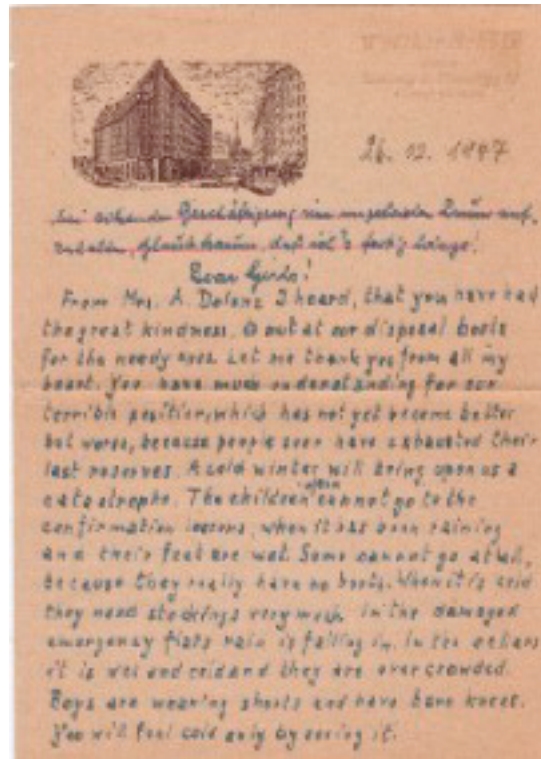 26. 12. 1947
Dear Girls!
From Mrs. A. Dolenz I heard, that you have had
the great kindness, to put at our disposal boots
for the needy ones. Let me thank you from all my
heart. You have much understanding for our
terrible position, which has not yet become better
but worse, because people ever have exhausted their
last reserves. A cold winter will bring upon us a
catastrophe. The children often cannot go to the
confirmation lessons, when it has been raining
and their feet are wet. Some cannot go at all,
because they really have no boots. When it is cold
they need stockings very much. In the damaged
emergency flats rain is falling in. In the others
it is wet and cold and they are overcrowded.
Boys are wearing shorts and have bare knees.
You will feel cold only by seeing it.